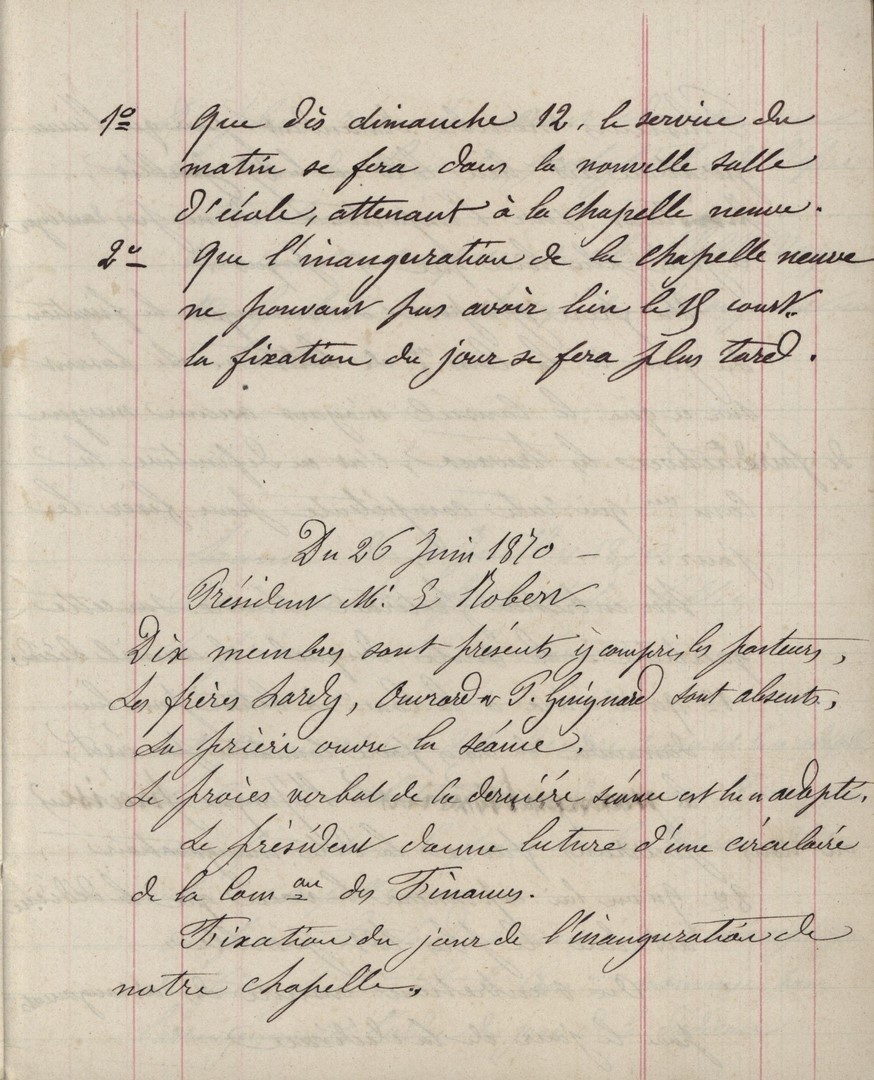 1º Que dès dimanche 12, le service du
matin se fera dans la nouvelle salle
d'école, attenant à la chapelle neuve.
2º Que l'inauguration de la chapelle neuve
ne pouvant pas avoir lieu le 19 court.
la fixation du jour se fera plus tard.
Du 26 Juin 1870 –
Président Mr. E Robert
Dix membres sont présents y compris les pasteurs,
Les frères Lardy, Ouvrard et P. Guignard sont absents,
La prière ouvre la séance.
Le procès verbal de la dernière séance est lu et adopté.
Le président donne lecture d'une circulaire
de la Com on des Finances.
Fixation du jour de l'inauguration de
notre chapelle.,